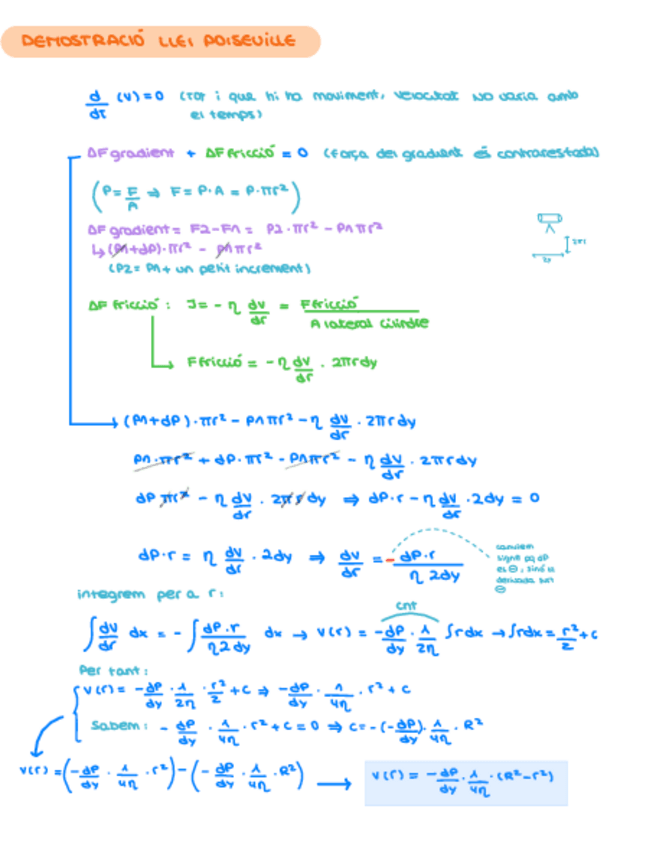 DEMOSTRACIÓ LLEI POISEUILLE
d/dt (v) = 0 (tot i que hi ha moviment, velocitat no varia amb
el temps)
ΔF gradient + ΔF fricció = 0 (força del gradient és contrarestada)
(P = F/A ⇒ F = P·A = P·πr²)
ΔF gradient = F2 - F1 = P2·πr² - P1πr²
↳ (P1+dP)·πr² - P1πr²
(P2 = P1 + un petit increment)
ΔF fricció: J = -η dv/dr = F fricció / A lateral cilindre
F fricció = -η dv/dr · 2πrdy
(P1+dP)·πr² - P1πr² - η dv/dr · 2πrdy
P1·πr² + dP·πr² - P1πr² - η dv/dr · 2πrdy
dP πr² - η dv/dr · 2πrdy ⇒ dP·r - η dv/dr · 2dy = 0
dP·r = η dv/dr · 2dy ⇒ dv/dr = - dP·r / η 2dy
canviem
signe pq dP
és ⊖, sinó la
derivada surt
⊖
integrem per a r:
cnt
∫ dv/dr dx = - ∫ dP·r / η2dy dx → v(r) = -dP/dy · 1/2η ∫rdx → ∫rdx = r²/2 + c
Per tant:
v(r) = -dP/dy · 1/2η · r²/2 + c ⇒ -dP/dy · 1/4η · r² + c
Sabem: -dP/dy · 1/4η · r² + c = 0 ⇒ c = -(-dP/dy) · 1/4η · R²
v(r) = (-dP/dy · 1/4η · r²) - (-dP/dy · 1/4η · R²) → v(r) = -dP/dy · 1/4η · (R²-r²)